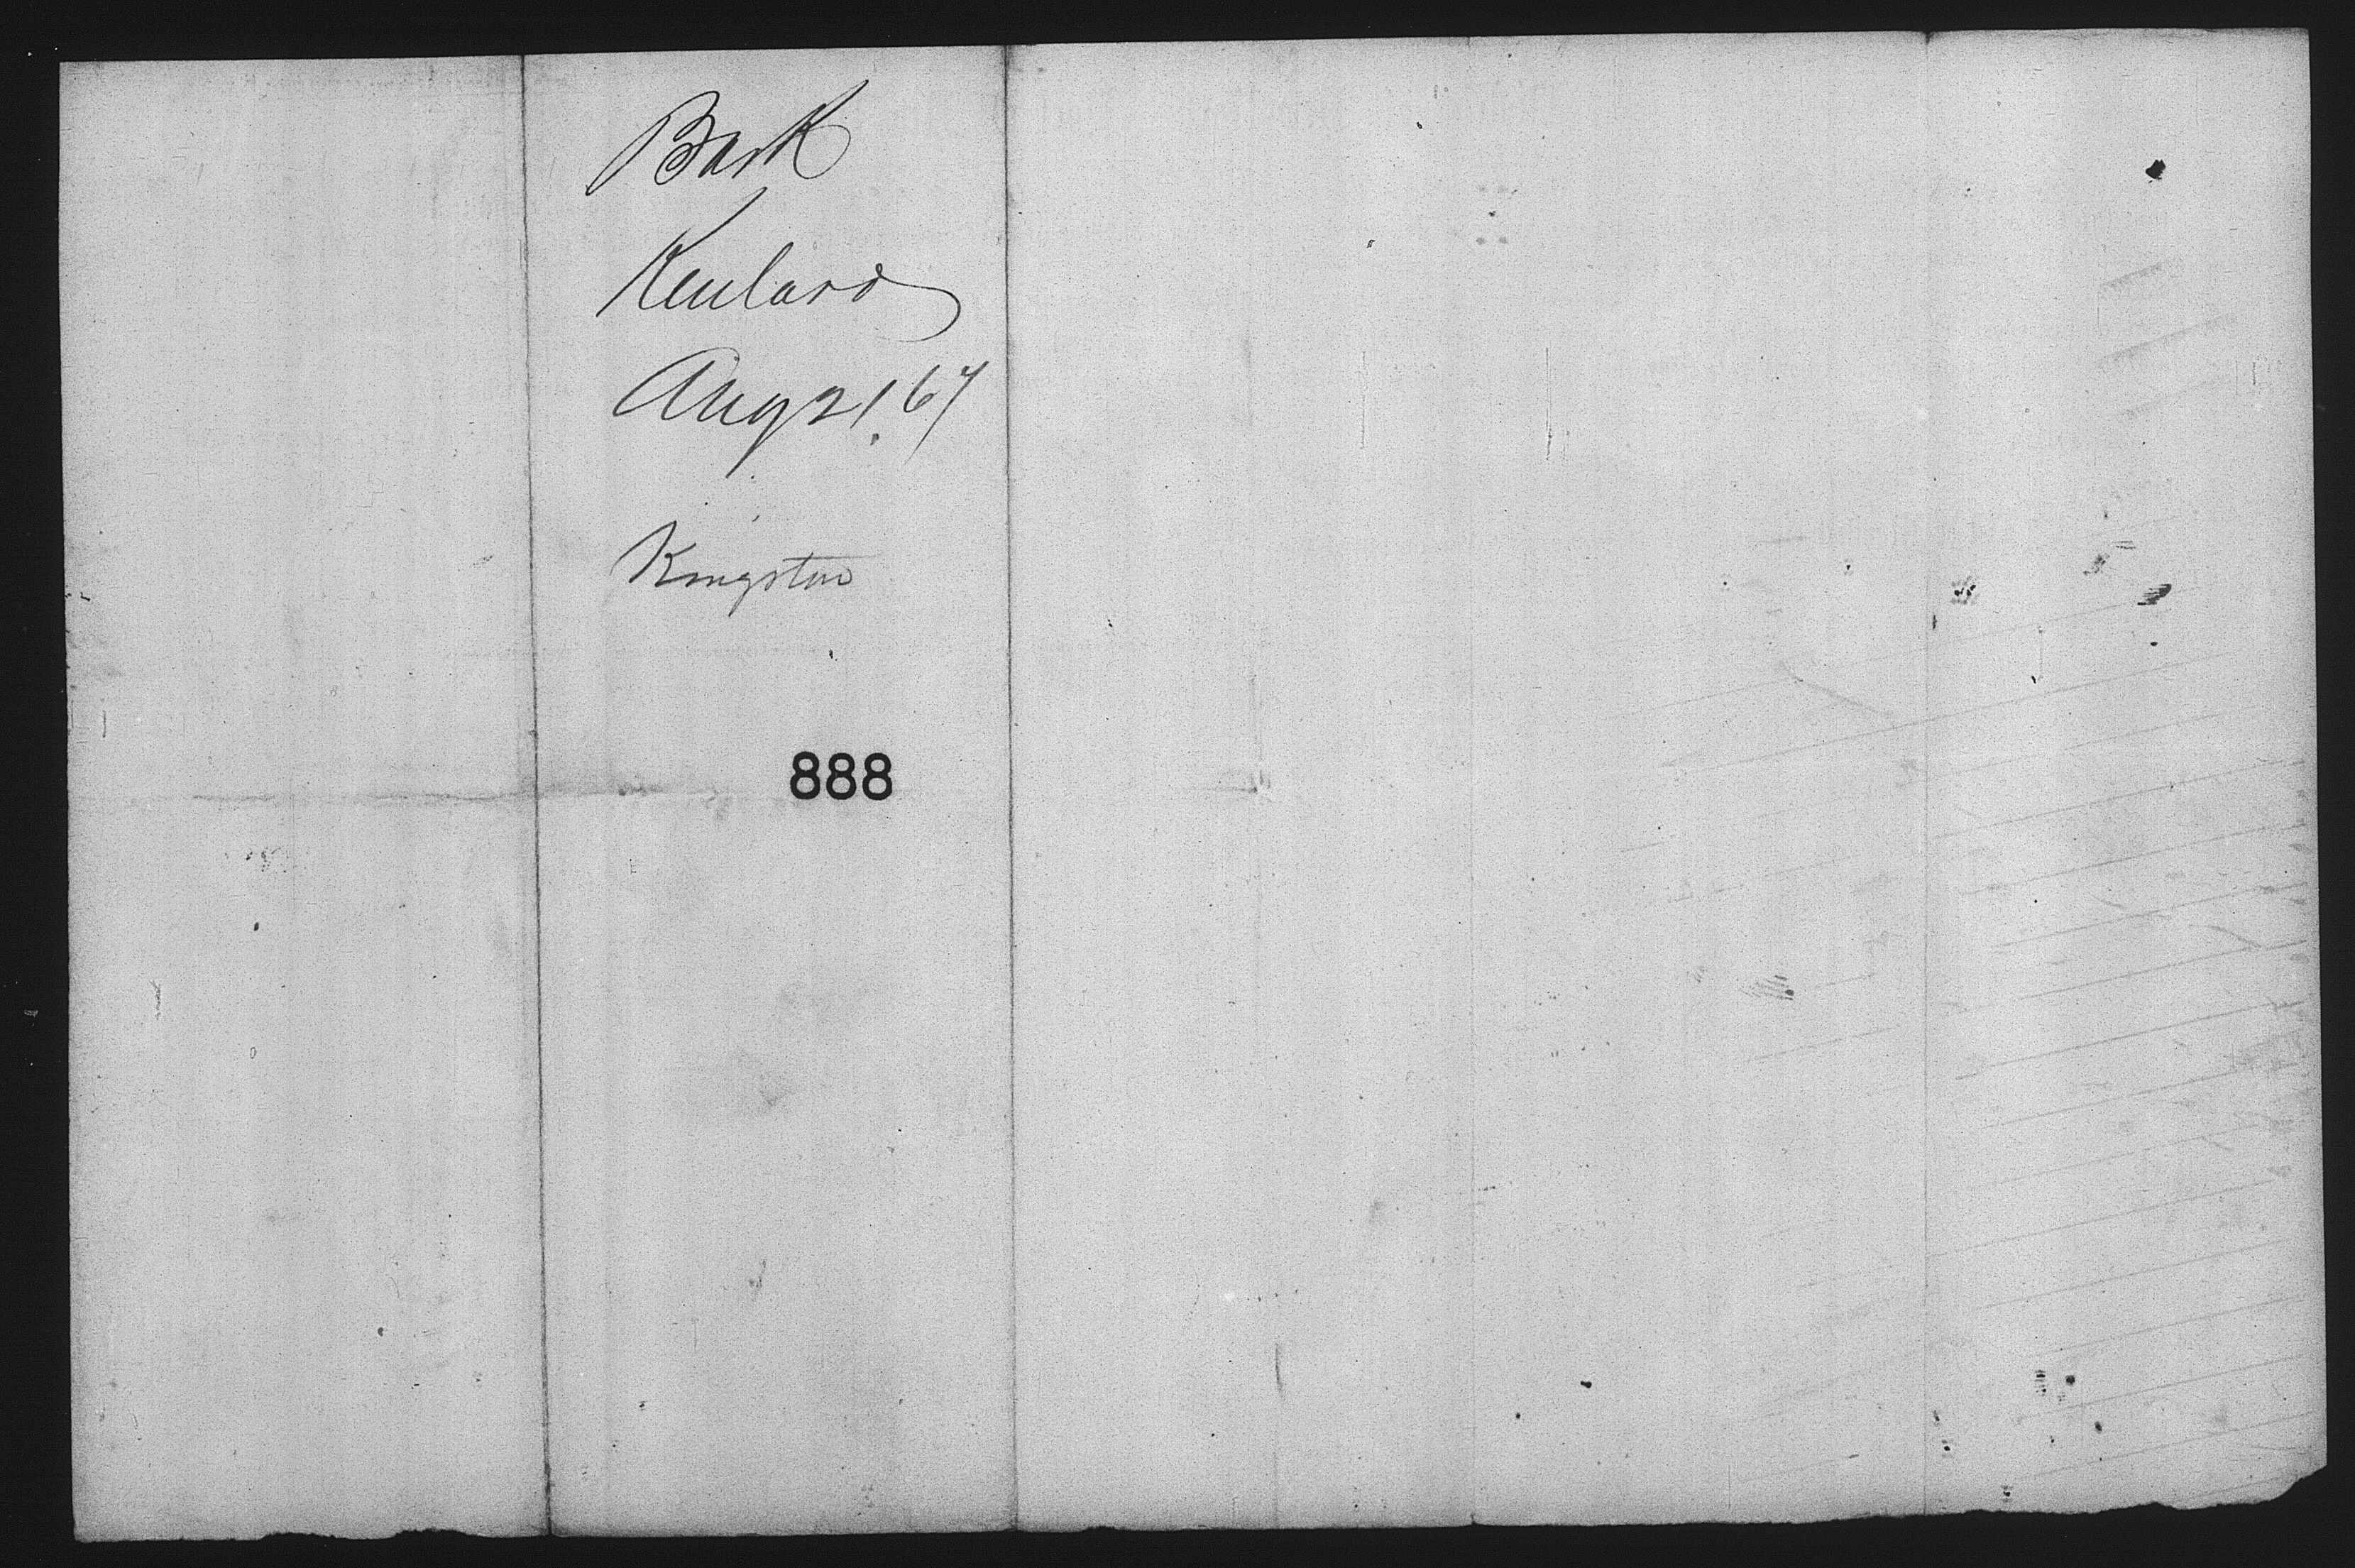 Bark
Aug 21. 67
Kingston
888